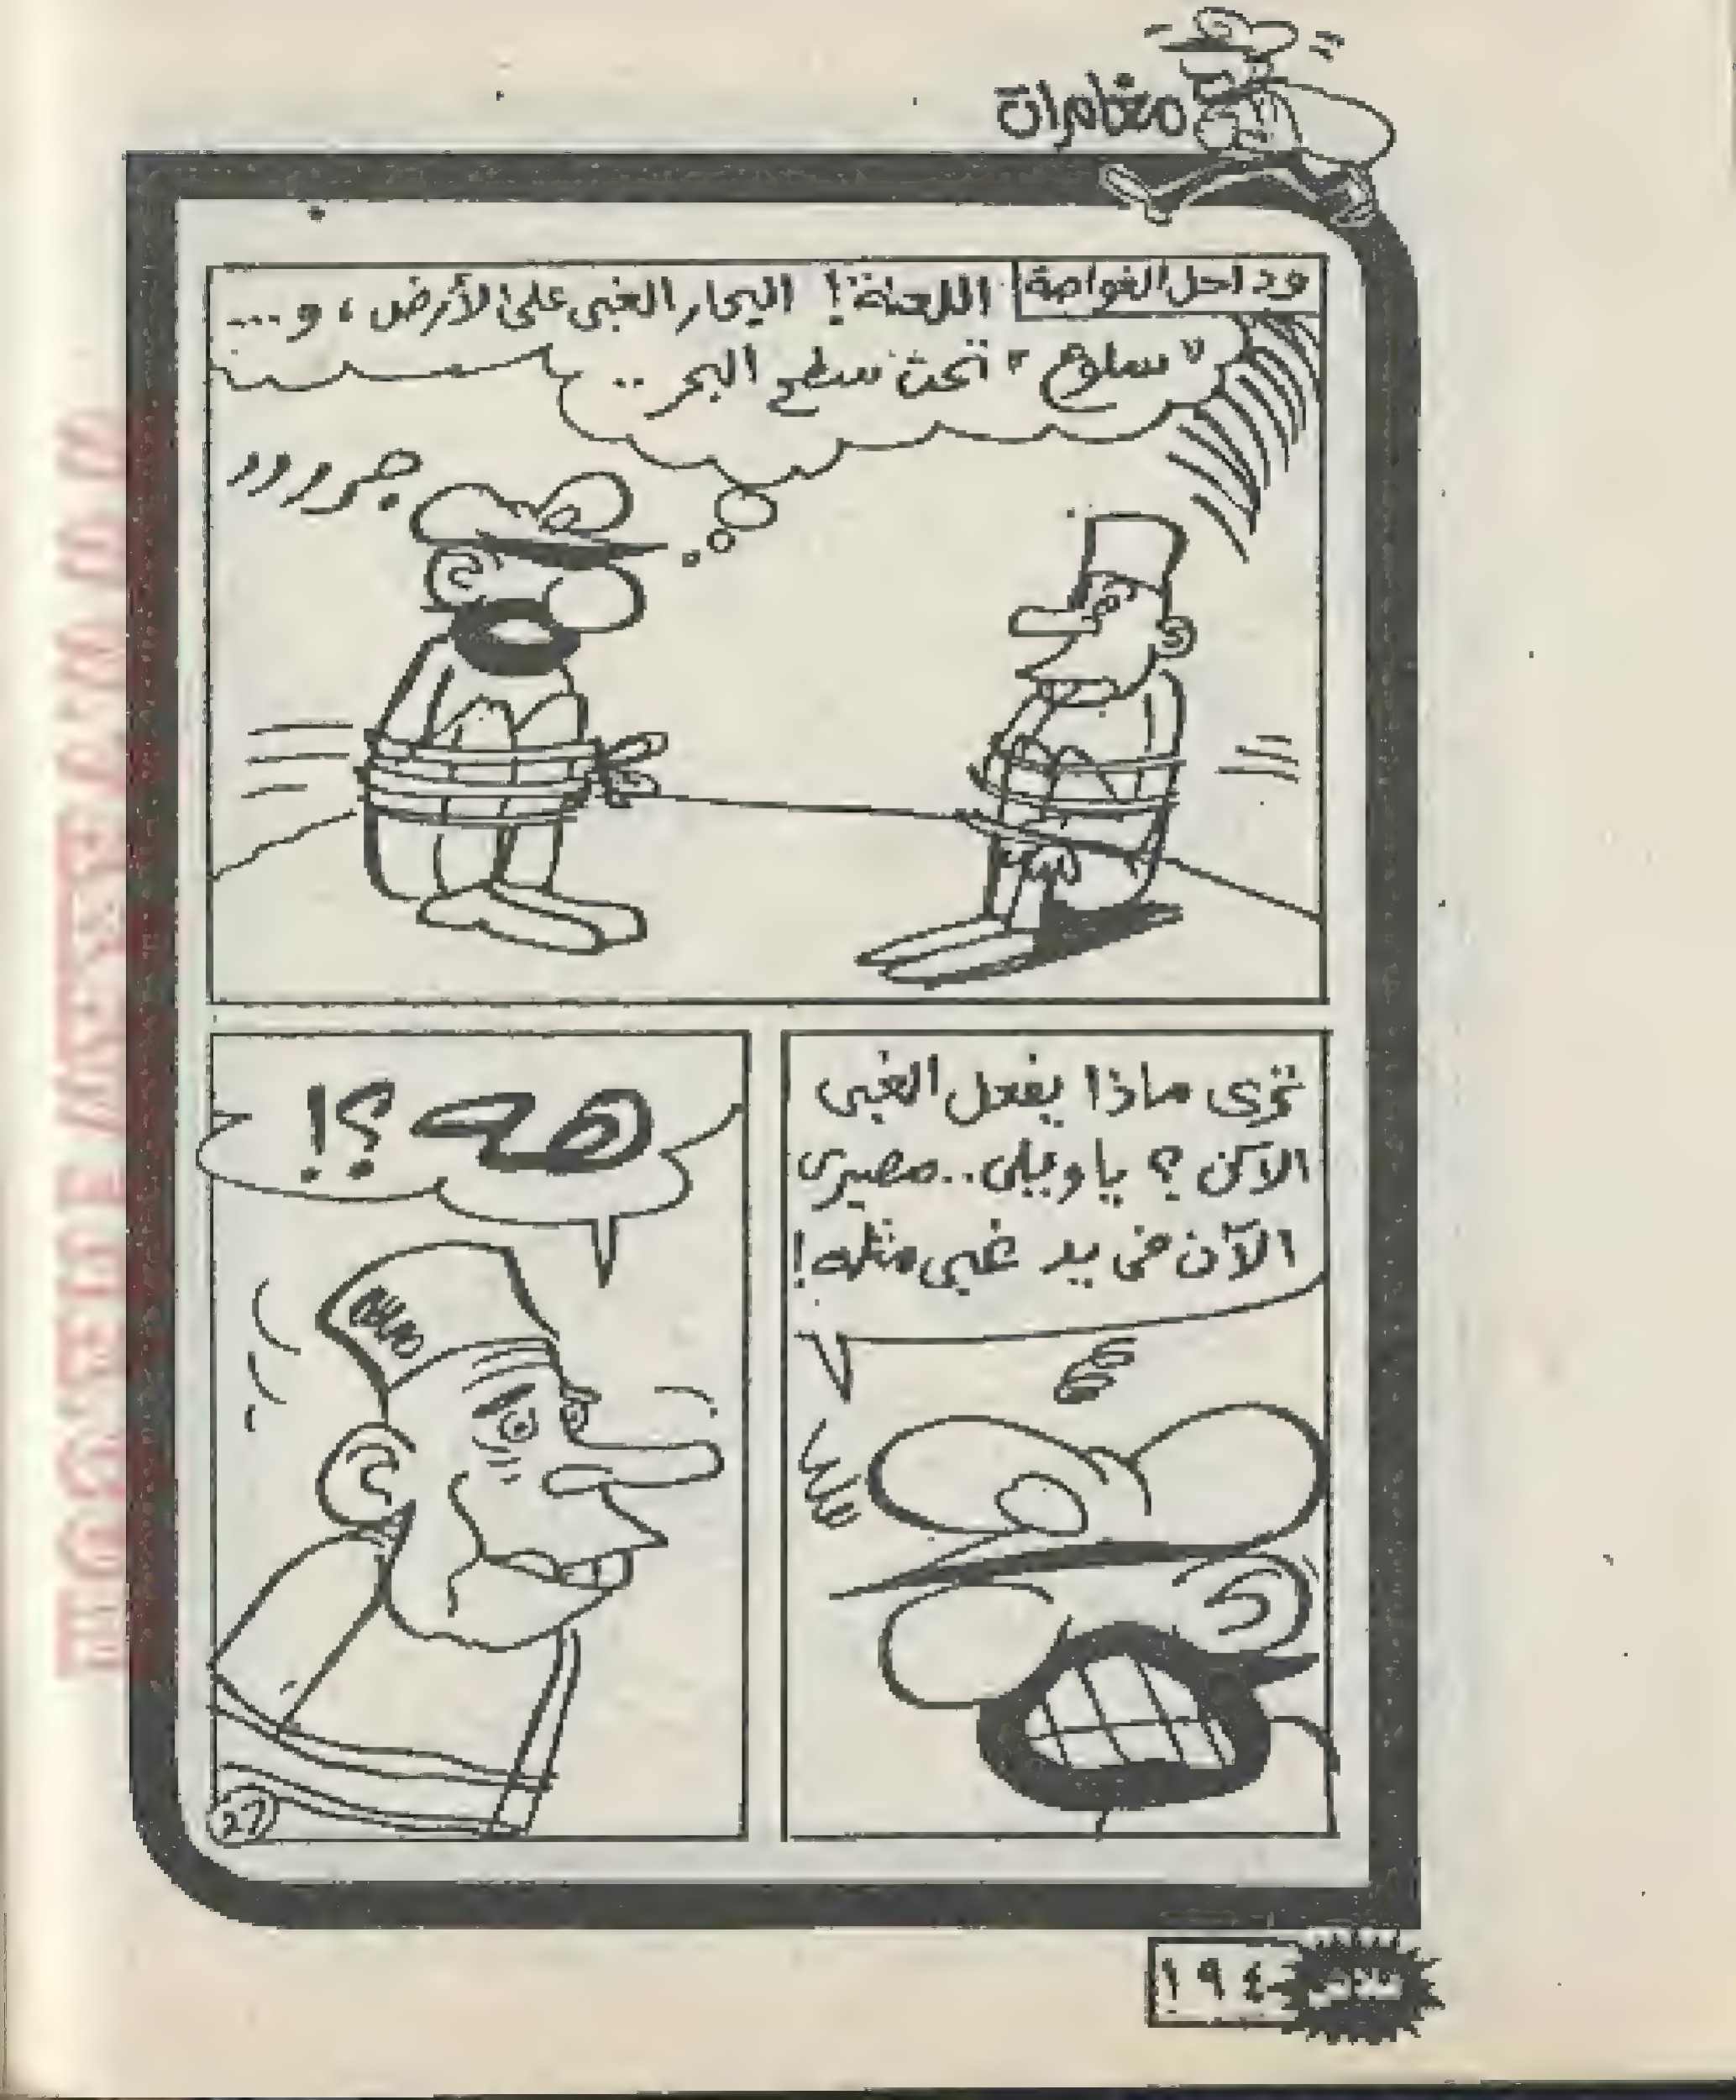 مغامرات
وداخل الغواصة
اللعنة! البحار الغبى على الأرض، و...
"سلوع" تحت سطح البحر ..
جررررر
ترى ماذا يفعل الغبى
الآن ؟ يا ويلى.. مصيرى
الآن فى يد غبى مثله!
هه ؟!
27
فلاش
١٩٤